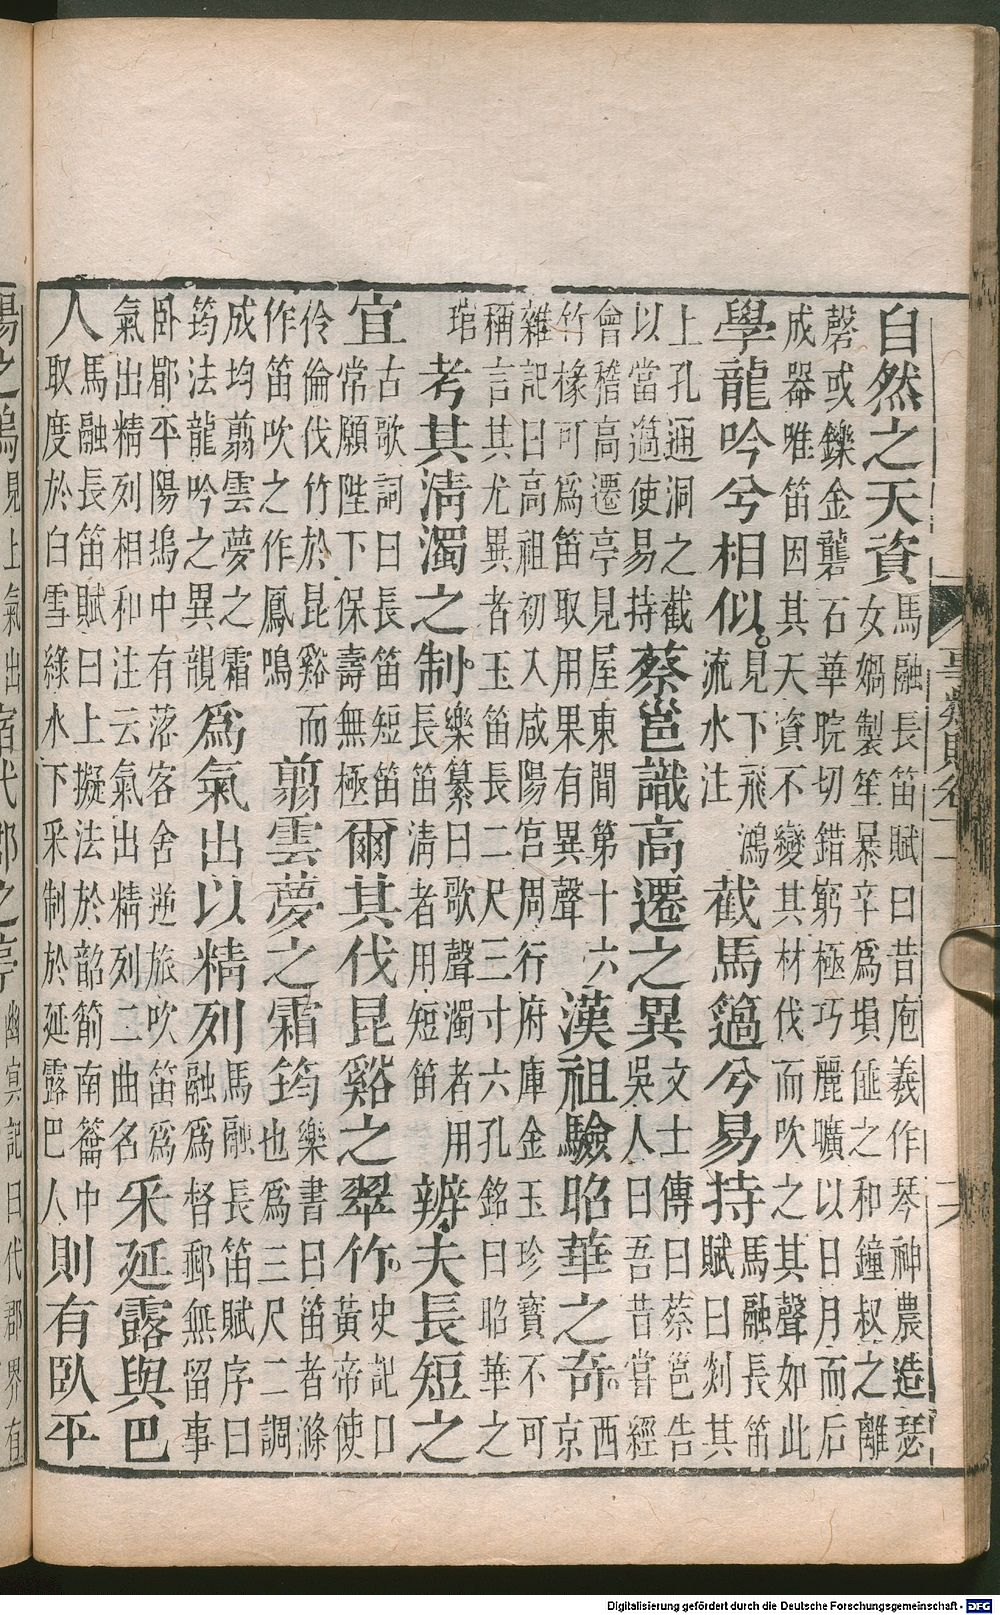 自然之天資馬融長笛賦曰昔庖羲作琴神農造瑟
女媧製笙暴辛為塤倕之和鐘叔之離
磬或鑠金礱石華睆切錯窮極巧麗曠以日月而后
成器唯笛因其天資不變其材伐而吹之其聲如此
學龍吟兮相似。見下飛鴻
流水注
截馬簻兮易持馬融長笛
賦曰剡其
上孔通洞之截
以當簻使易持
蔡邕識高遷之異文士傳曰蔡邕告
吳人曰吾昔嘗經
會稽高遷亭見屋東間第十六
竹椽可為笛取用果有異聲
漢祖驗昭華之奇。西
京
雜記曰高祖初入咸陽宮周行府庫金玉珍寶不可
稱言其尤異者玉笛長二尺三寸六孔銘曰昭華之
琯
考其清濁之制。樂纂曰歌聲濁者用
長笛清者用短笛
辨夫長短之
宜古歌詞曰長笛短笛
常願陛下保壽無極
爾其伐昆谿之翠竹。史記曰
黃帝使
伶倫伐竹於昆谿而
作笛吹之作鳳鳴
翦雲夢之霜筠樂書曰笛者滌
也為三尺二調
成均翦雲夢之霜
筠法龍吟之異韻
為氣出以精列馬融長笛賦序曰
融為督郵無留事
臥郿平陽塢中有落客舍逆旅吹笛為
氣出精列相和注云氣出精列二曲名
采延露與巴
人馬融長笛賦曰上擬法於韶箾南籥中
取度於白雪綠水下采制於延露巴人
則有臥平
陽之塢見上氣出宿代郡之亭幽冥記曰代郡界有
Digitalisierung gefördert durch die Deutsche Forschungsgemeinschaft - DFG